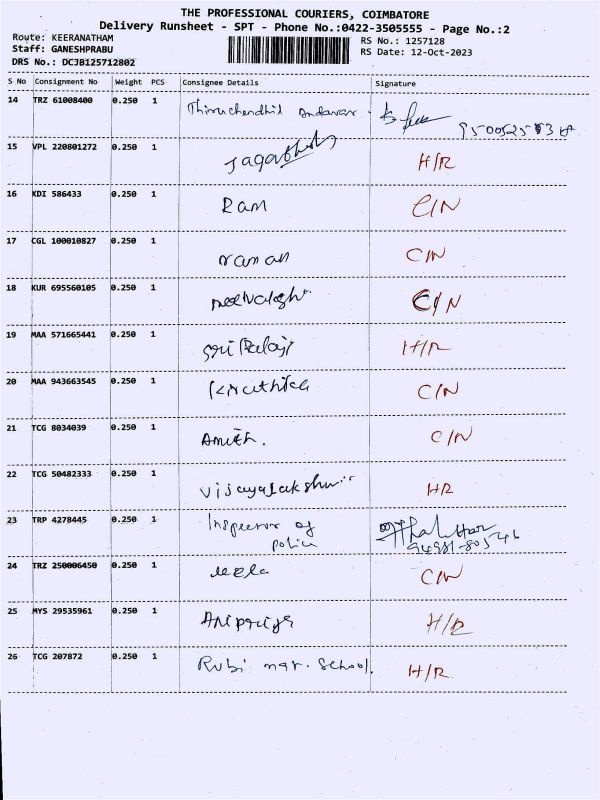 THE PROFESSIONAL COURIERS, COIMBATORE
Delivery Runsheet - SPT - Phone No.:0422-3505555 - Page No.:2
Route: KEERANATHAM
RS No.: 1257128
Staff: GANESHPRABU
RS Date: 12-Oct-2023
DRS No.: DCJB125712802
S No Consignment No Weight PCS Consignee Details Signature
14 TRZ 61008400 0.250 1 Thiruchendhil Andavar
15 VPL 220801272 0.250 1 H/R
16 KDI 586433 0.250 1 Ram C/N
17 CGL 100010827 0.250 1 raman C/N
18 KUR 695560105 0.250 1 C/N
19 MAA 571665441 0.250 1 Sri Balaji H/R
20 MAA 943663545 0.250 1 Kiruthika C/N
21 TCG 8034039 0.250 1 Amith. C/N
22 TCG 50482333 0.250 1 Vijayalakshmi HR
23 TRP 4278445 0.250 1 Inspector of
police 94981-80546
24 TRZ 250006450 0.250 1 C/N
25 MYS 29535961 0.250 1 H/R
26 TCG 207872 0.250 1 Rubi mat. School. H/R